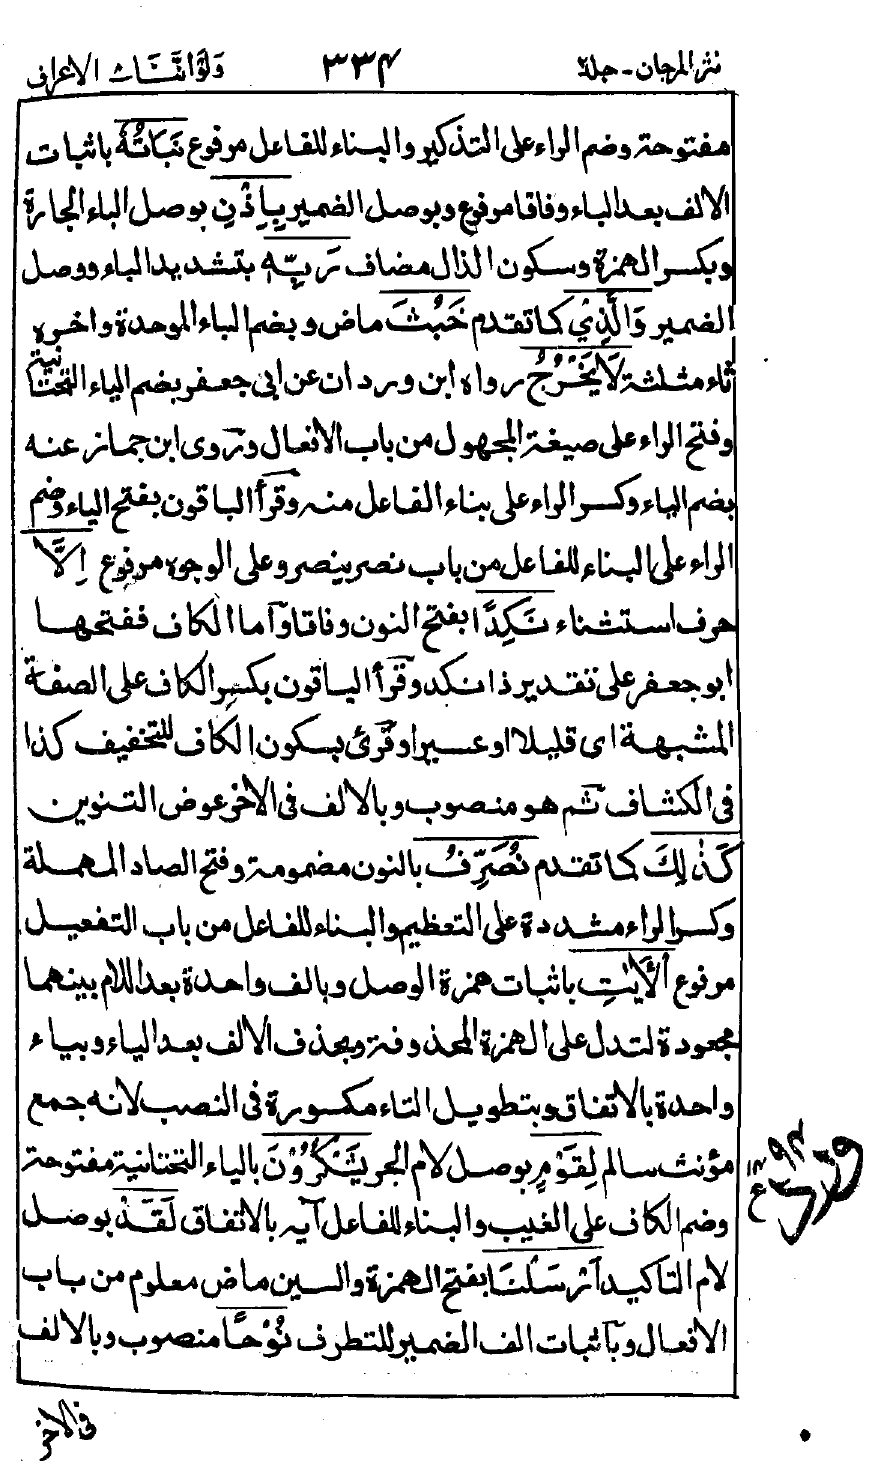 نثر المرجان - جلد٢
٣٣٤
ولو اننا - الاعراف
مفتوحة وضم الراء على التذكير والبناء للفاعل مرفوع نَبَاتُهُ باثبات
الالف بعد الباء وفاقا مرفوع وبوصل الضمير بِاِذْنِ بوصل الباء الجارة
وبكسر الهمزة وسكون الذال مضاف رَبِّهٖ بتشديد الباء ووصل
الضمير وَالَّذِيْ كما تقدم خَبُثَ ماض وبضم الباء الموحدة واخره
ثاء مثلثة لَا يَخْرُجُ رواه ابن وردان عن ابى جعفر بضم الياء التحتانية
وفتح الراء على صيغة المجهول من باب الافعال وروى ابن جماز عنه
بضم الياء وكسر الراء على بناء الفاعل منه وقرأ الباقون بفتح الياء وضم
الراء على البناء للفاعل من باب نصر ينصر وعلى الوجوه مرفوع اِلَّا
حرف استثناء نَكِدًا بفتح النون وفاقا وأما الكاف ففتحها
ابو جعفر على تقدير ذا نكد وقرأ الباقون بكسر الكاف على الصفة
المشبهة اى قليلا او عسيرا وقرئ بسكون الكاف للتخفيف كذا
فى الكشاف ثم هو منصوب وبالالف فى الاخر عوض التنوين
كَذٰلِكَ كما تقدم نُصَرِّفُ بالنون مضمومة وفتح الصاد المهملة
وكسر الراء مشددة على التعظيم والبناء للفاعل من باب التفعيل
مرفوع الْاٰيٰتِ باثبات همزة الوصل وبالف واحدة بعد اللام بينهما
مجعودة لتدل على الهمزة المحذوفة وبحذف الالف بعد الياء وبياء
واحدة بالاتفاق وبتطويل التاء مكسورة فى النصب لانه جمع
مؤنث سالم لِقَوْمٍ بوصل لام الجر يَشْكُرُوْنَ بالياء التحتانية مفتوحة
وضم الكاف على الغيب والبناء للفاعل آية بالاتفاق لَقَدْ بوصل
لام التاكيد اَرْسَلْنَا بفتح الهمزة والسين ماض معلوم من باب
الافعال وباثبات الف الضمير للتطرف نُوْحًا منصوب وبالالف
فى الاخر